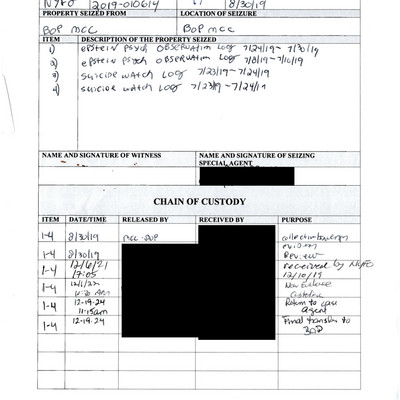 2019-010614 8/30/19
PROPERTY SEIZED FROM LOCATION OF SEIZURE
BOP MCC BOP MCC
ITEM DESCRIPTION OF THE PROPERTY SEIZED
1) EPSTEIN PSYCH OBSERVATION LOG 7/24/19 - 7/30/19
2) EPSTEIN PSYCH OBSERVATION LOG 7/8/19 - 7/10/19
3) SUICIDE WATCH LOG 7/23/19 - 7/24/19
4) SUICIDE WATCH LOG 7/23/19 - 7/24/19
NAME AND SIGNATURE OF WITNESS NAME AND SIGNATURE OF SEIZING
SPECIAL AGENT
CHAIN OF CUSTODY
ITEM DATE/TIME RELEASED BY RECEIVED BY PURPOSE
1-4 8/30/19 MCC-BOP collection
1-4 8/30/19 Review
1-4 12/6/21 received by
17:05 12/10/19
1-4 12/1/22 New Evidence
AM Custodian
1-4 12-19-24 Return to case
11:15am Agent
1-4 12-19-24 Final transfer to